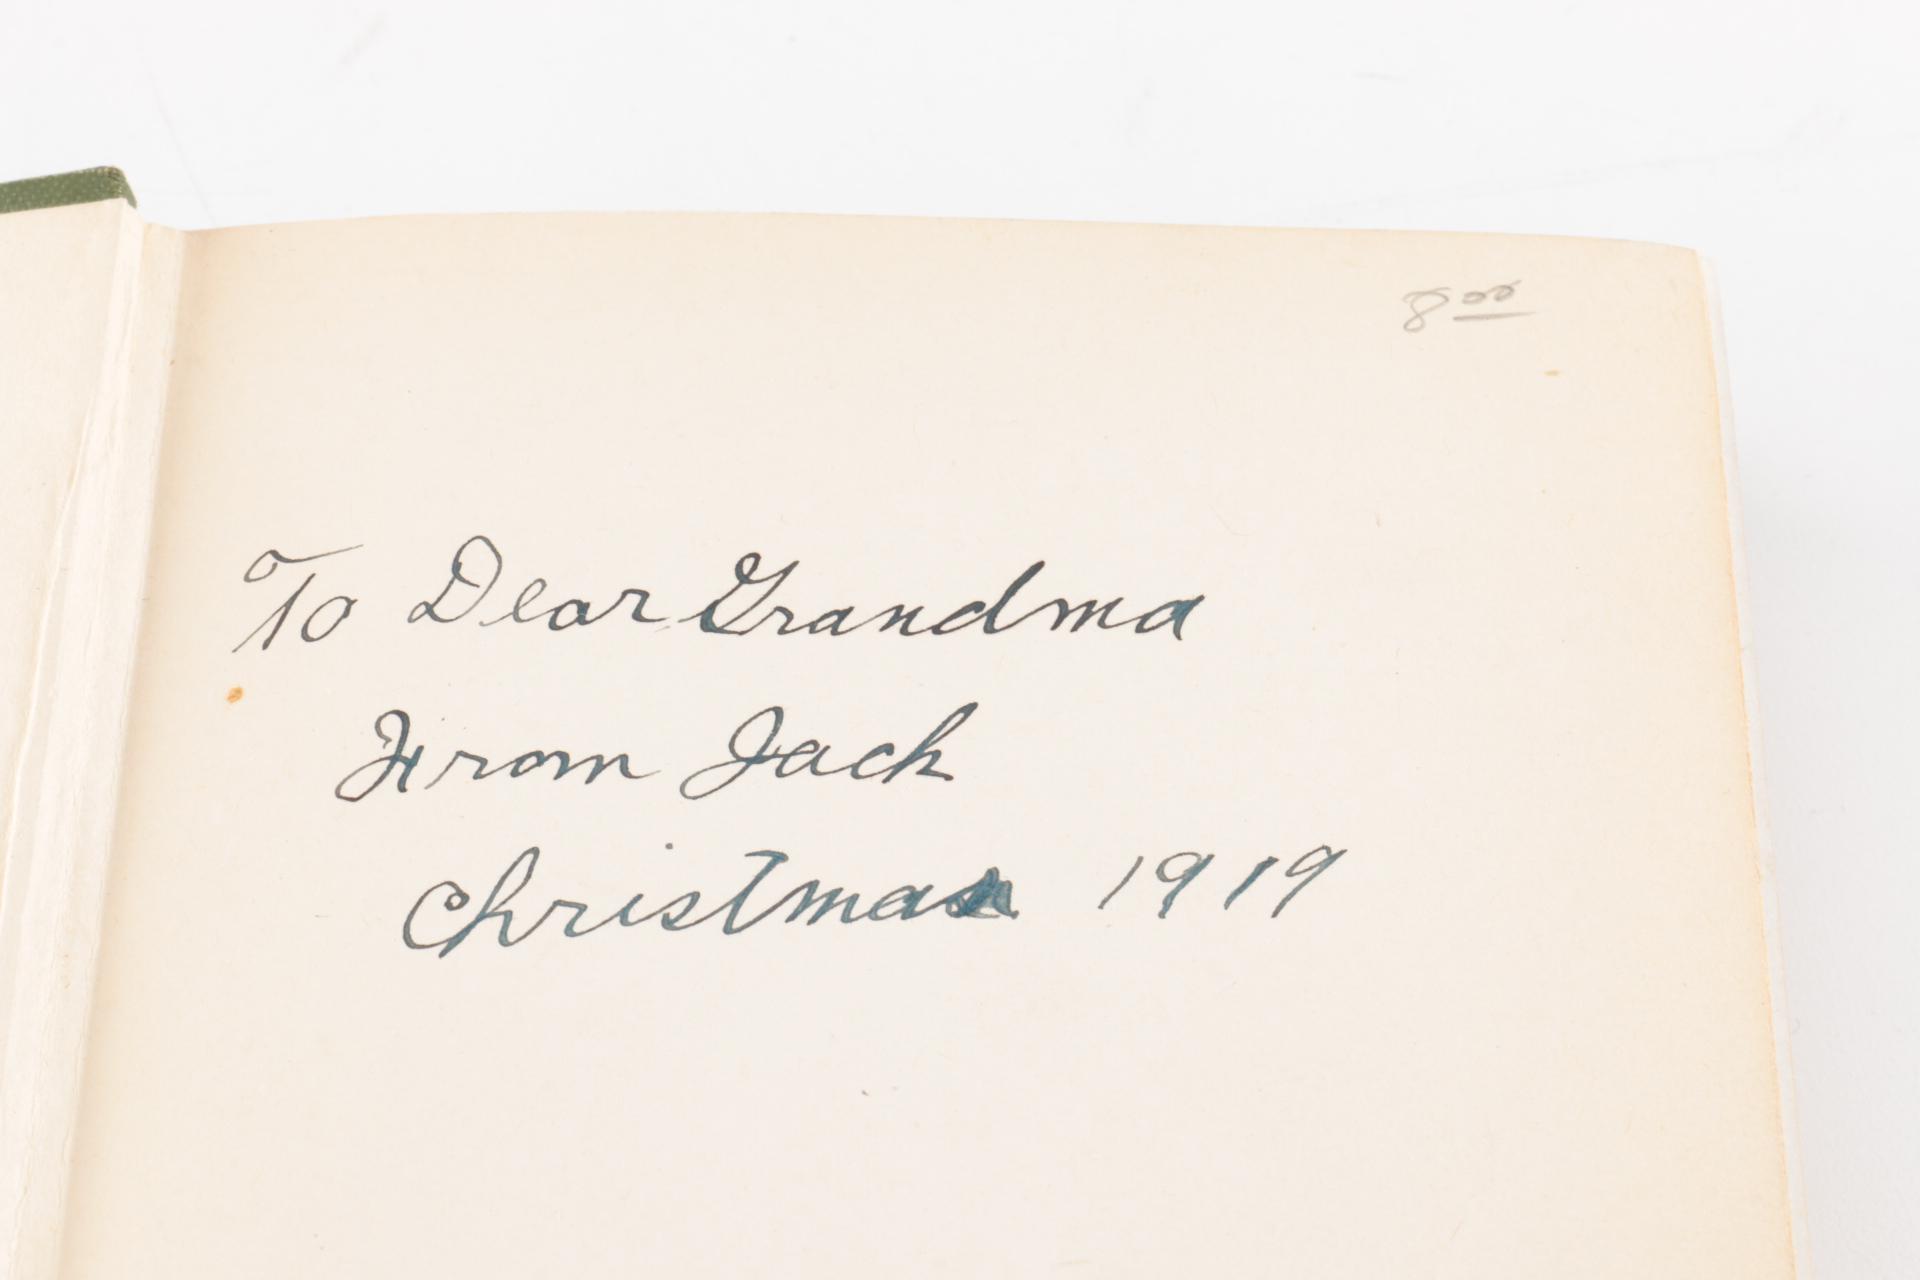 8 00
To Dear Grandma
From Jack
Christmas 1919